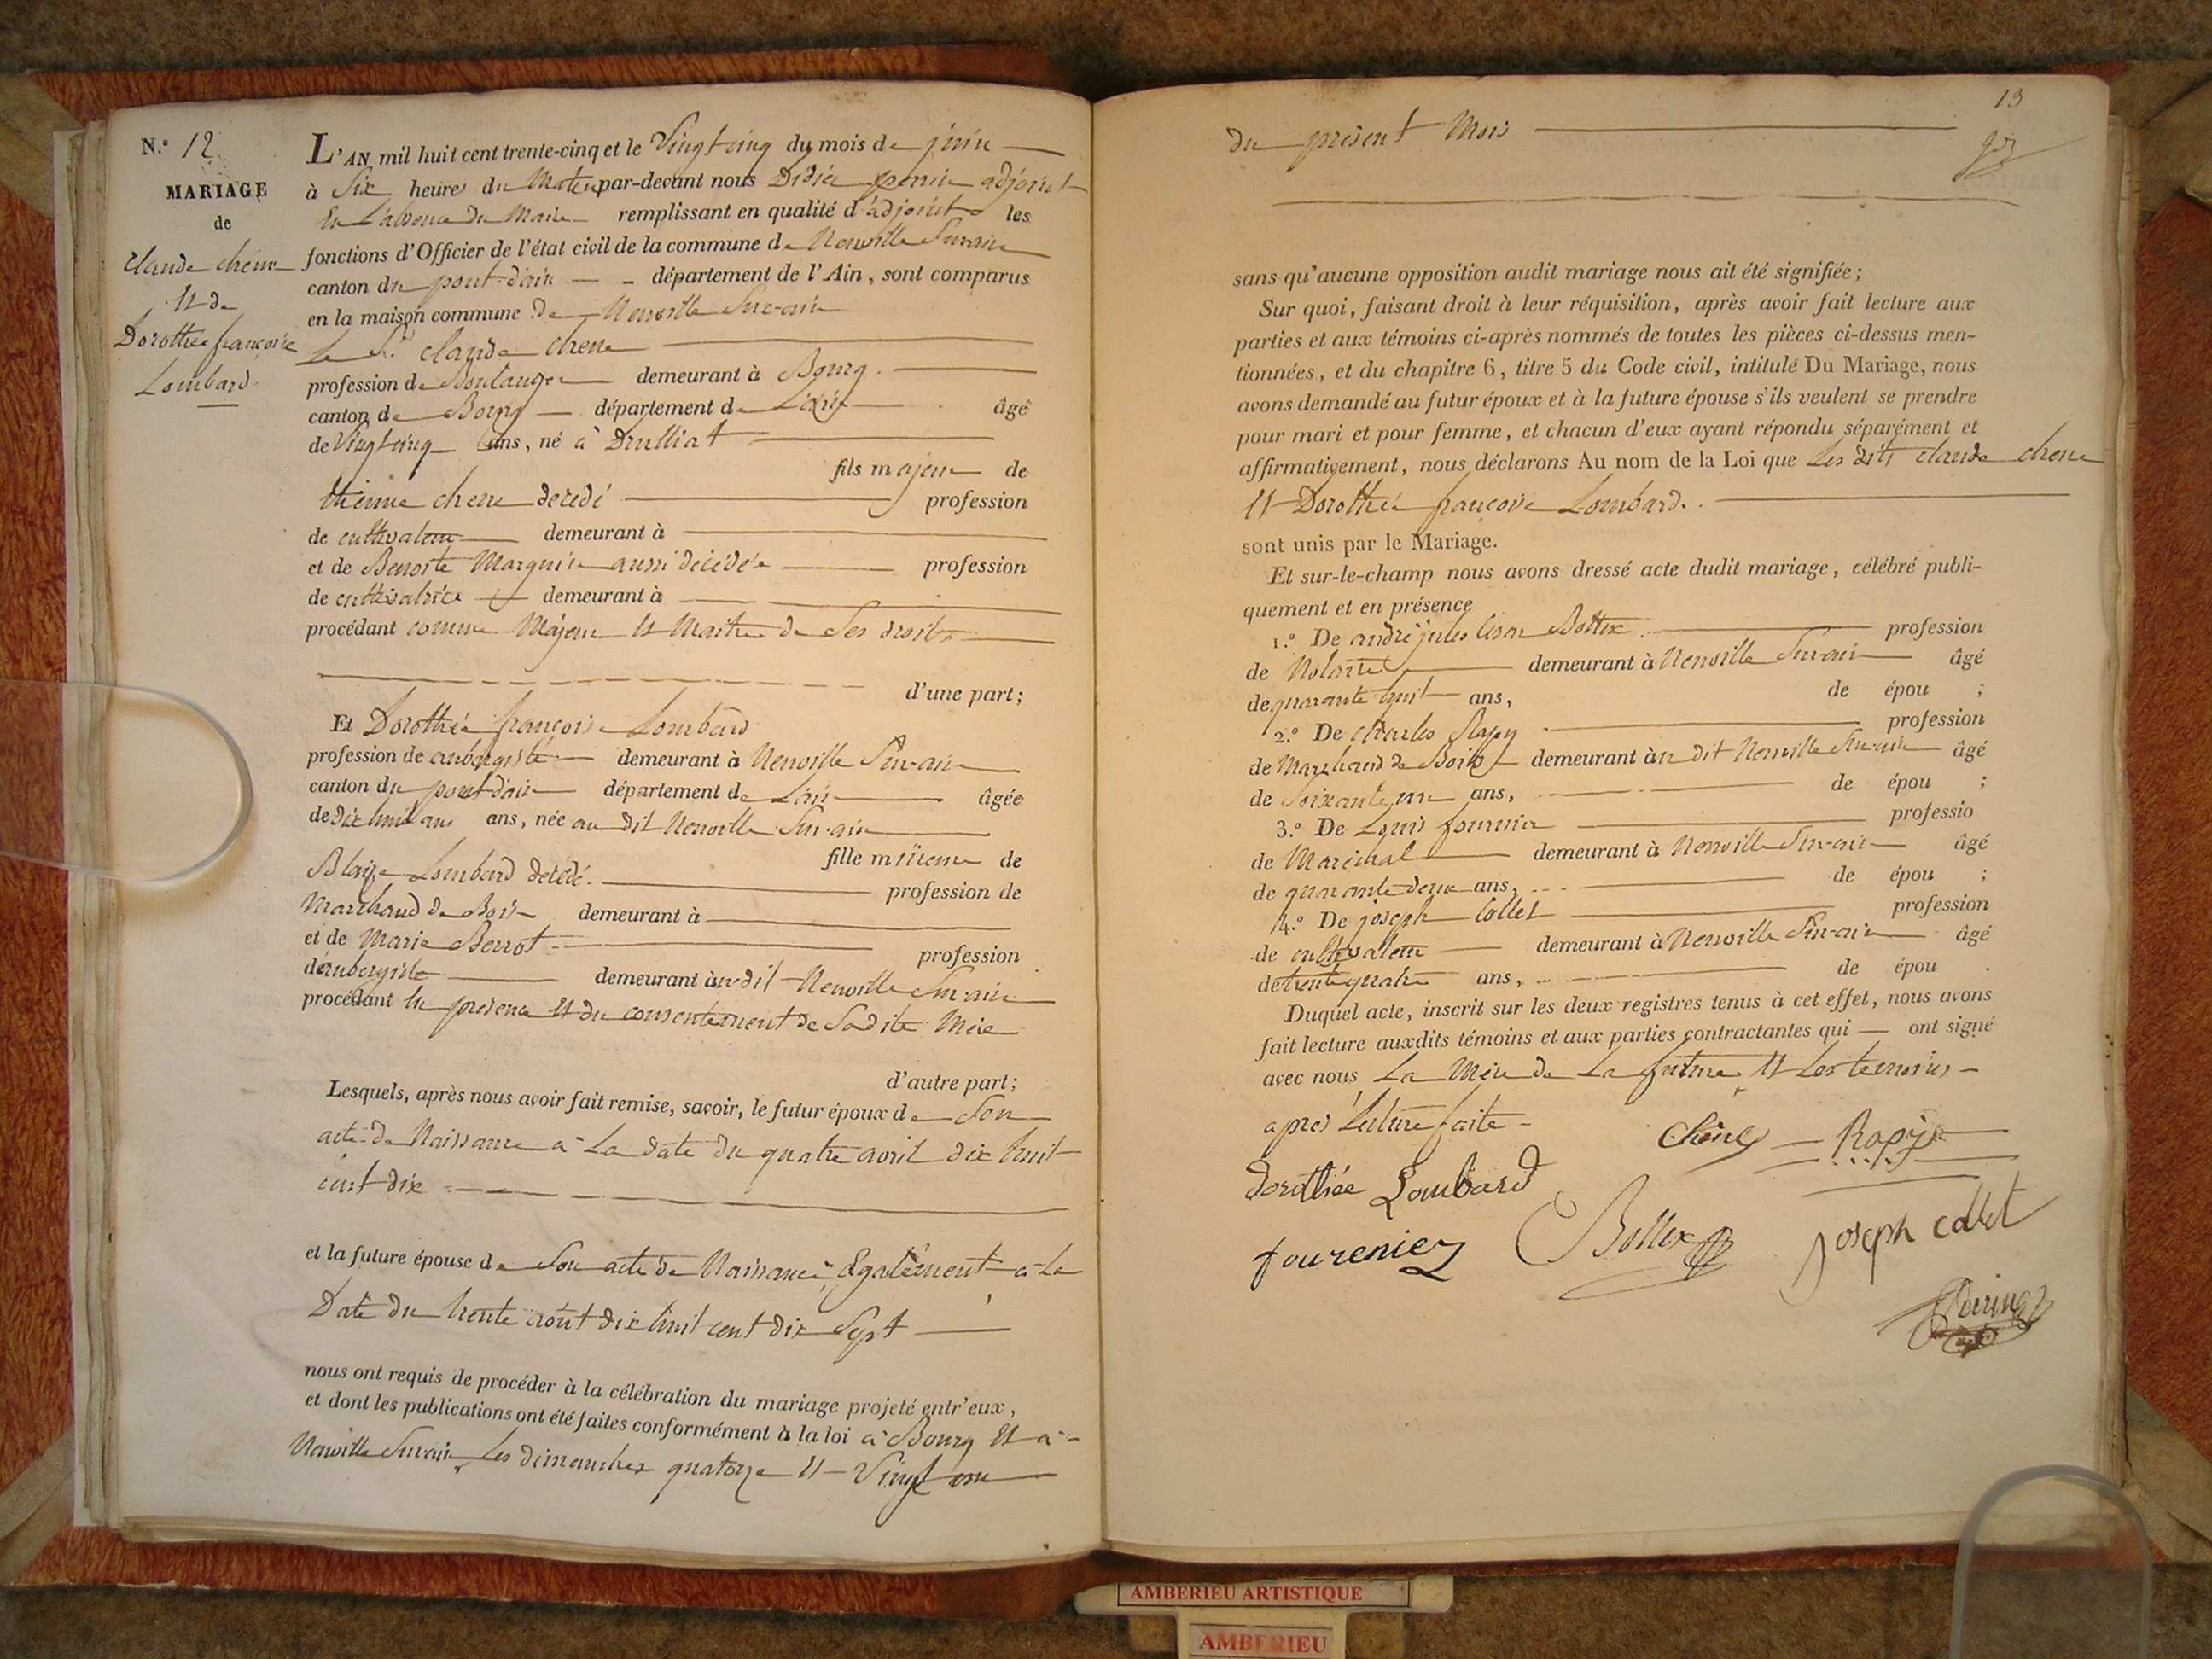 N.° 12
MARIAGE
de
Claude chene
Et de
Dorothée françoise
Lombard
L'AN mil huit cent trente-cinq et le Vingt cinq du mois de juin
à Six heures du Matin par-devant nous Didier perrin adjoint
En L'absence du Maire remplissant en qualité d'adjoint les
fonctions d'Officier de l'état civil de la commune de Neuville Sur ain
canton du pont-d'ain département de l'Ain, sont comparus
en la maison commune de Neuville Sur-ain
Le Sr. claude chene
profession de Boulanger demeurant à Bourg
canton de Bourg département de L'ain âgé
de Vingt cinq ans, né à Drulliat
fils majeur de
Etienne chene décédé profession
de cultivateur demeurant à
et de Benoite Marguin aussi décédée profession
de cultivatrice demeurant à
procédant comme Majeur Et Maitre de Ses droits
d'une part;
Et Dorothée françoise Lombard
profession de aubergiste demeurant à Neuville Sur-ain
canton du pont d'ain département de L'ain âgée
de Dix huit ans ans, née au dit Neuville Sur-ain
fille mineure de
Blaise Lombard décédé profession de
Marchand de Bois demeurant à
et de Marie Berrot profession
d'aubergiste demeurant au dit Neuville Sur-ain
procédant En presence Et du consentement de Sadite Mère
d'autre part;
Lesquels, après nous avoir fait remise, savoir, le futur époux de Son
acte de Naissance à La date du quatre avril dix huit
cent dix
et la future épouse de Son acte de Naissance Egalement a La
Date du trente août dix huit cent dix Sept
nous ont requis de procéder à la célébration du mariage projeté entr'eux,
et dont les publications ont été faites conformément à la loi à Bourg Et a
Neuville Sur ain Les dimanches quatorze Et Vingt un
13
du présent Mois
sans qu'aucune opposition audit mariage nous ait été signifiée;
Sur quoi, faisant droit à leur réquisition, après avoir fait lecture aux
parties et aux témoins ci-après nommés de toutes les pièces ci-dessus men-
tionnées, et du chapitre 6, titre 5 du Code civil, intitulé Du Mariage, nous
avons demandé au futur époux et à la future épouse s'ils veulent se prendre
pour mari et pour femme, et chacun d'eux ayant répondu séparément et
affirmativement, nous déclarons Au nom de la Loi que Les dits claude chene
Et Dorothée françoise Lombard.
sont unis par le Mariage.
Et sur-le-champ nous avons dressé acte dudit mariage, célébré publi-
quement et en présence
1.° De andré jules César Bottex profession
de Notaire demeurant à Neuville Sur-ain âgé
de quarante huit ans, de épou ;
2.° De charles Rapy profession
de Marchand de Bois demeurant au dit Neuville Sur-ain âgé
de Soixante un ans, de épou ;
3.° De Louis fournier professio
de Maréchal demeurant à Neuville Sur-ain âgé
de quarante deux ans, de épou ;
4.° De joseph Collet profession
de cultivateur demeurant à Neuville Sur-ain âgé
de trente quatre ans, de épou .
Duquel acte, inscrit sur les deux registres tenus à cet effet, nous avons
fait lecture auxdits témoins et aux parties contractantes qui ont signé
avec nous La Mère de La future Et Les temoins
apres Lecture faite
Chêne Rapy
dorothée Lombard
fourenier Bottex joseph collet
Perrin
AMBERIEU ARTISTIQUE
AMBERIEU